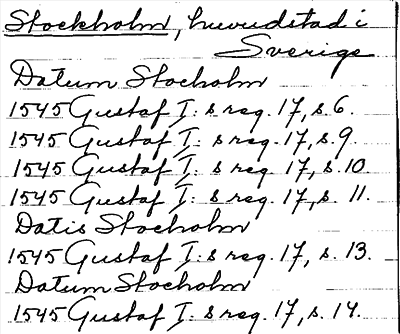 Stockholm, huvudstad i
Sverige
Datum Stocholm
1545 Gustaf I: s reg. 17, s. 6.
1545 Gustaf I: s reg. 17, s. 9.
1545 Gustaf I: s reg. 17, s. 10.
1545 Gustaf I: s reg. 17, s. 11.
Datis Stocholm
1545 Gustaf I: s reg. 17, s. 13.
Datum Stocholm
1545 Gustaf I: s reg. 17, s. 14.